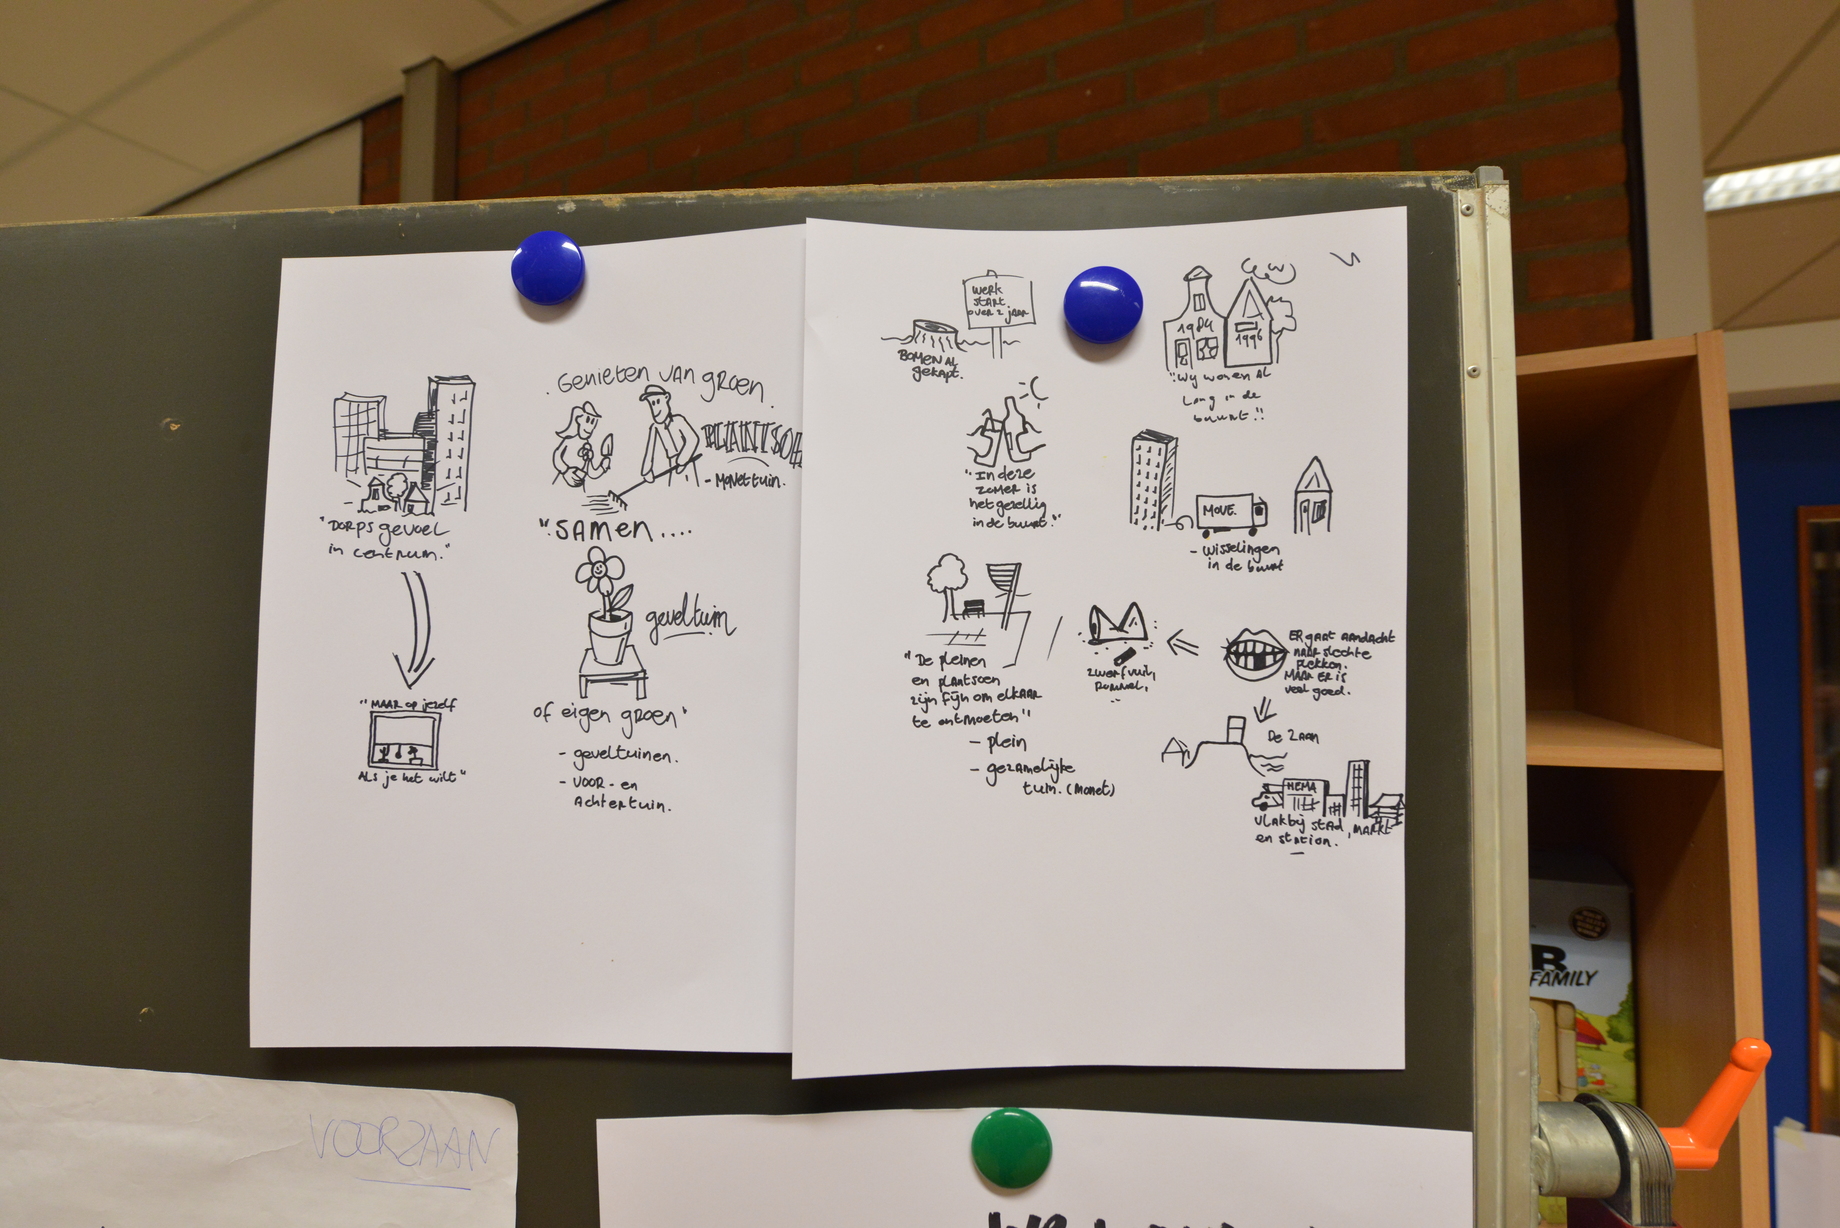 "DORPSgevoel
in centrum."
"MAAR op jezelf
Als je het wilt"
Genieten van groen
PLANTSO
- Monettuin.
"SAMEN....
geveltuin
of eigen groen"
- geveltuinen.
- VOOR- en
Achtertuin.
werk
start
over 2 jaar
BOMEN AL
gekapt.
1984
1996
"Wij wonen AL
Lang in de
buurt."
"In deze
zomer is
het gezellig
in de buurt."
MOVE.
- wisselingen
in de buurt
"De pleinen
en plantsoen
zijn fijn om elkaar
te ontmoeten"
- plein
- gezamelijke
tuin. (Monet)
zwerfvuil,
rommel,
ER gaat aandacht
naar slechte
plekken.
MAAR ER is
veel goed.
De Zaan
HEMA
vlakbij stad, MARKT
en station.
VOORZAAN
B
FAMILY